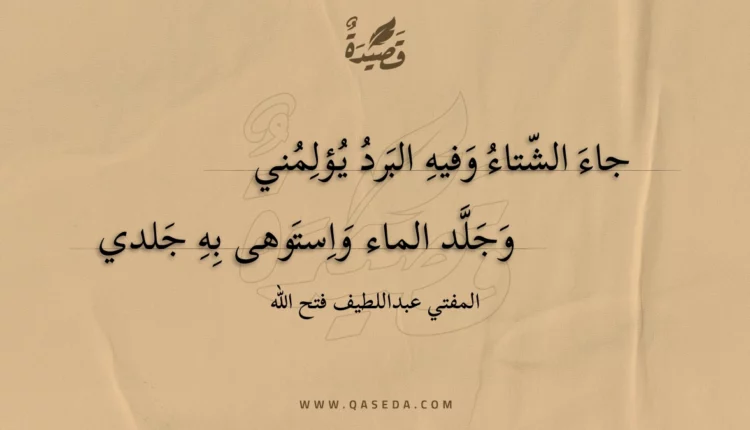 قَصِيْدَةٌ
جاءَ الشّتاءُ وَفيهِ البَردُ يُؤلِمُني
وَجَلَّد الماء وَاِستَوهى بِهِ جَلدي
المفتي عبداللطيف فتح الله
WWW.QASEDA.COM